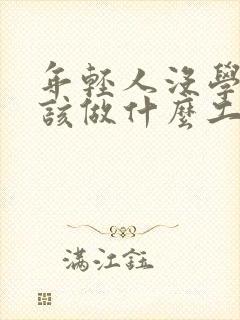 年輕人沒學
該做什麼工
滿江鈺